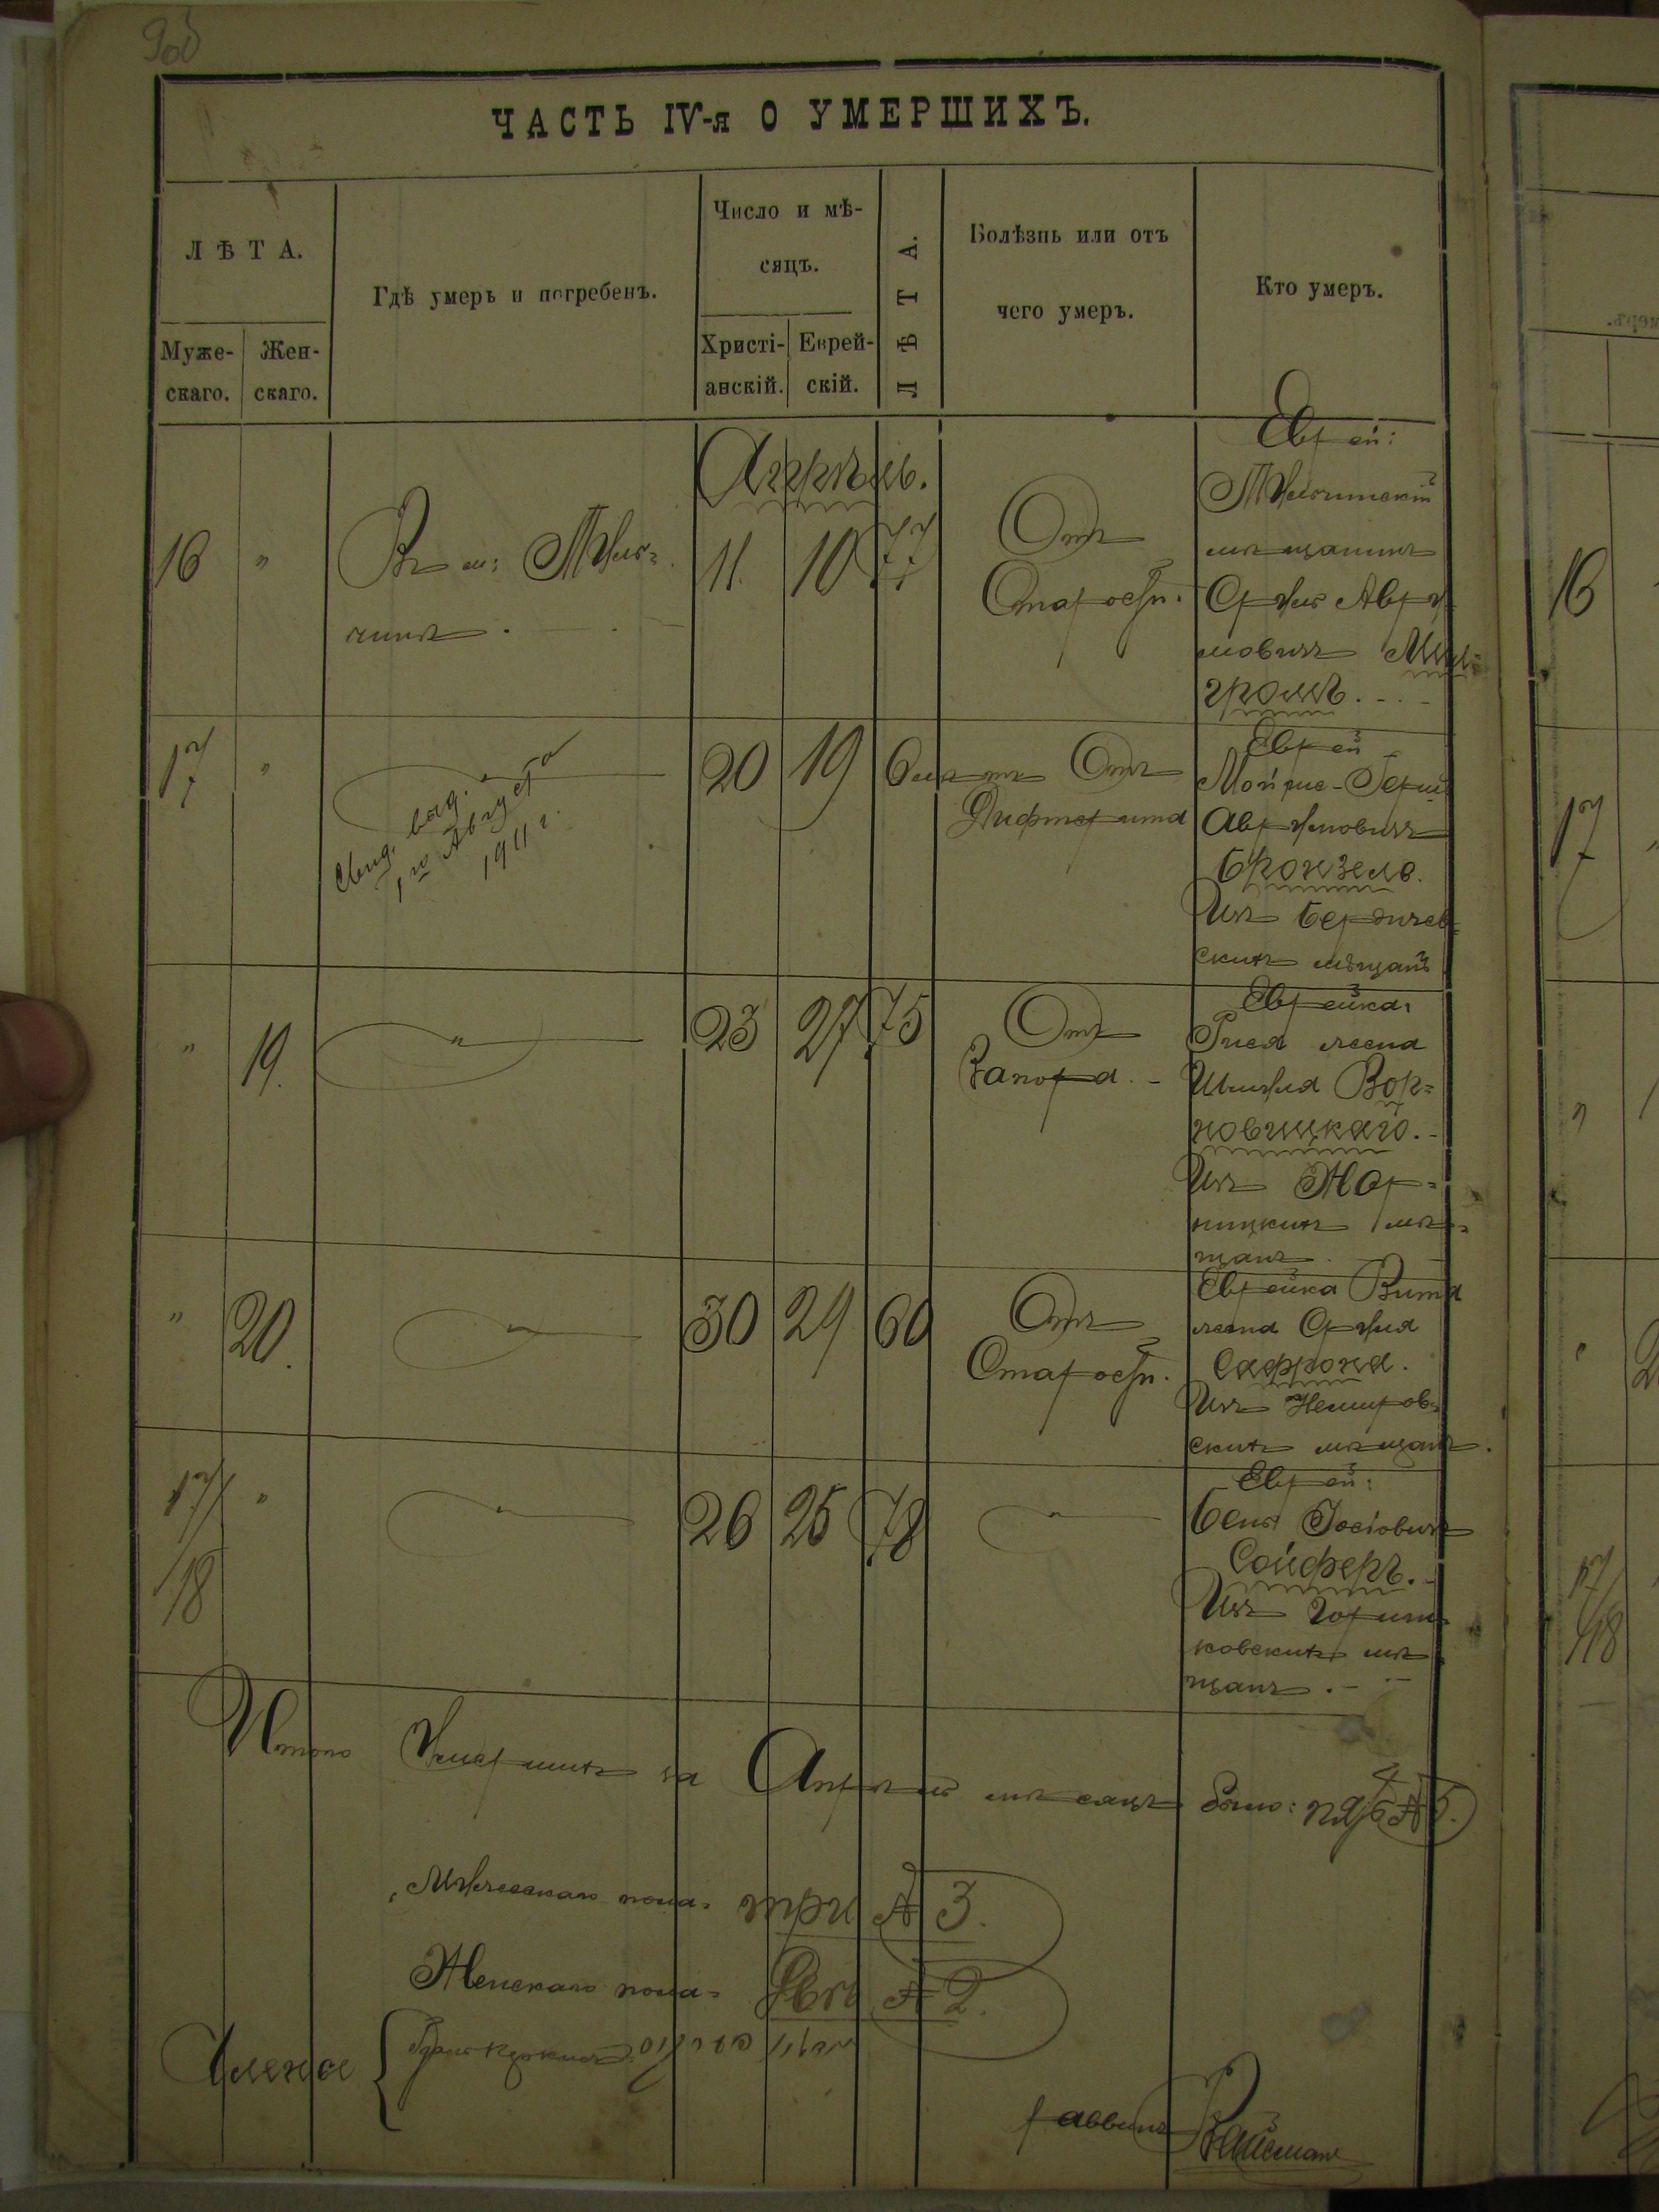 906
ЧАСТЬ IV-я О УМЕРШИХЪ.
ЛѢТА.
Муже-
скаго.
Жен-
скаго.
Гдѣ умеръ и погребенъ.
Число и мѣ-
сяцъ.
Христі-
анскій.
Еврей-
скій.
ЛѢТА.
Болѣзнь или отъ
чего умеръ.
Кто умеръ.
Апрѣль.
16 " Въ м: Тѵль=
чинѣ.
11 10 77
Отъ
Старости.
Еврей:
Тульчинскій
мѣщанинъ
Сруль Авру
мовичъ Мил=
громъ.
17 " "
Свид. выд.
1го Августа
1911 г.
20 19 6 лѣтъ Отъ
Дифтерита
Еврей
Мойше-Герш
Аврумовичъ
Бронзель.
Изъ Бердичев=
скихъ мѣщанъ
" 19. "
23 27 75
Отъ
Запора.
Еврейка:
Рися жена
Шмуля Вор=
новицкаго.
Изъ
ницкихъ мѣ=
щанъ.
" 20. "
30 29 60
Отъ
Старости.
Еврейка Вита
жена Сруля
Сафрона.
Изъ Немиров=
скихъ мѣщанъ.
17/18 " "
26 25 78 "
Еврей:
Бенъ Іосіовичъ
Сойферъ.
Изъ Горыш=
ковскихъ мѣ
щанъ.
Итого Умершихъ за Апрѣль мѣсяцъ было: пять № 5.
Мужескаго пола= три № 3.
Женскаго пола= двѣ № 2.
Члены {
раввинъ